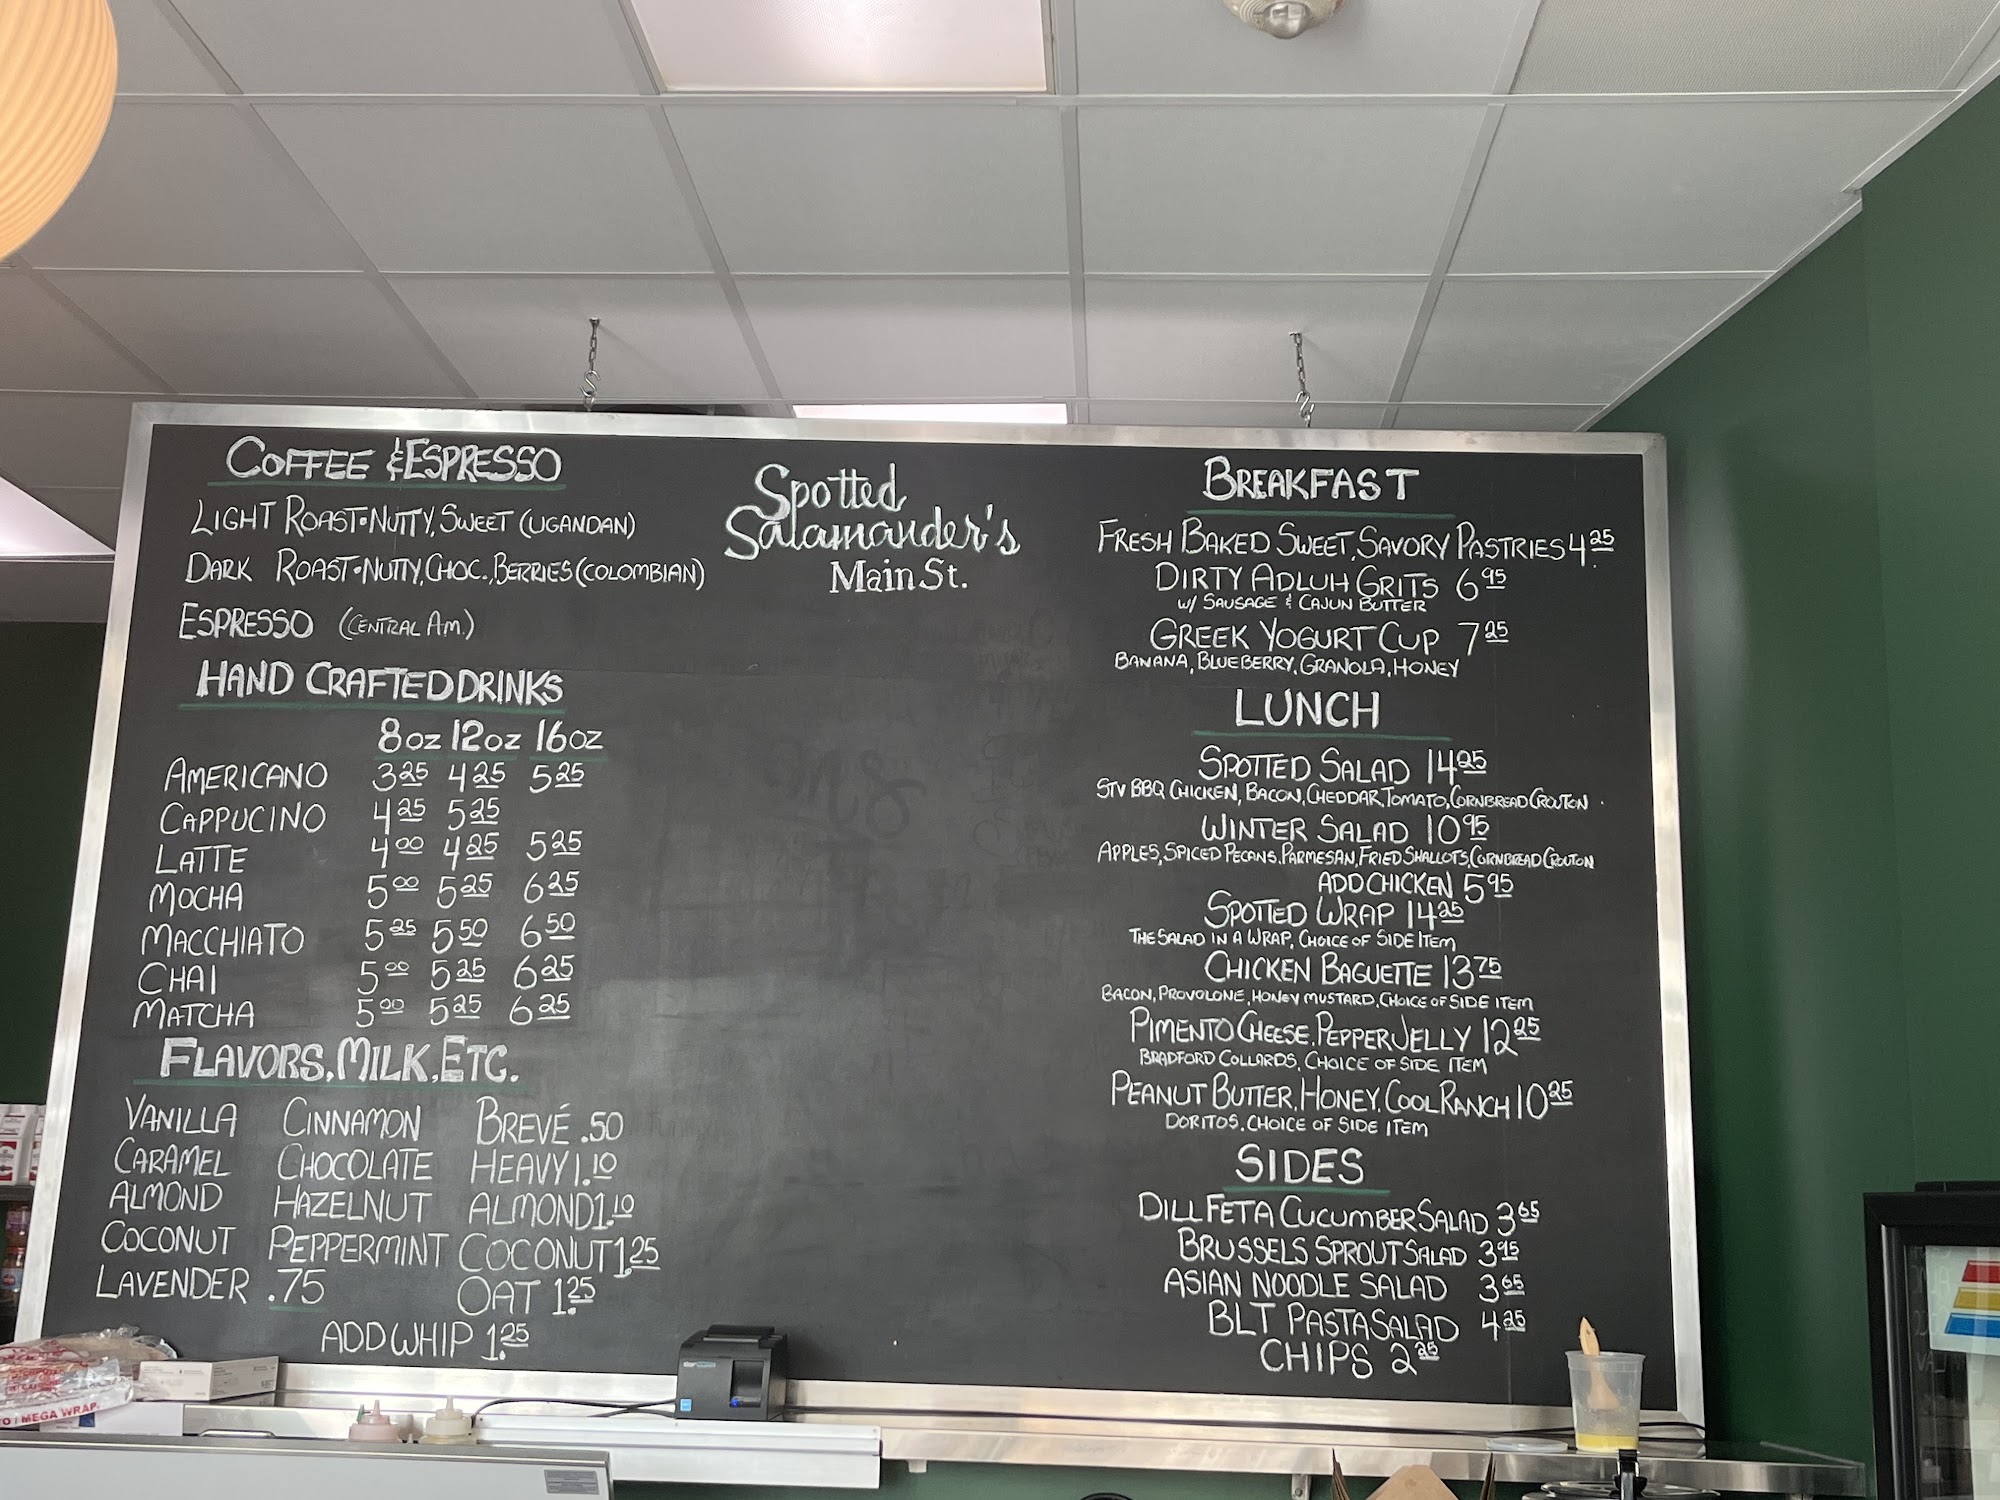 COFFEE & ESPRESSO
LIGHT ROAST•NUTTY, SWEET (UGANDAN)
DARK ROAST•NUTTY, CHOC., BERRIES (COLOMBIAN)
ESPRESSO (CENTRAL AM.)
HAND CRAFTED DRINKS
8oz 12oz 16oz
AMERICANO 3.25 4.25 5.25
CAPPUCINO 4.25 5.25
LATTE 4.00 4.25 5.25
MOCHA 5.00 5.25 6.25
MACCHIATO 5.25 5.50 6.50
CHAI 5.00 5.25 6.25
MATCHA 5.00 5.25 6.25
FLAVORS, MILK, ETC.
VANILLA CINNAMON BREVÉ .50
CARAMEL CHOCOLATE HEAVY 1.10
ALMOND HAZELNUT ALMOND 1.10
COCONUT PEPPERMINT COCONUT 1.25
LAVENDER .75 OAT 1.25
ADD WHIP 1.25
Spotted
Salamander's
Main St.
BREAKFAST
FRESH BAKED SWEET, SAVORY PASTRIES 4.25
DIRTY ADLUH GRITS 6 95
W/ SAUSAGE & CAJUN BUTTER
GREEK YOGURT CUP 7 25
BANANA, BLUEBERRY, GRANOLA, HONEY
LUNCH
SPOTTED SALAD 14 25
STV BBQ CHICKEN, BACON, CHEDDAR, TOMATO, CORNBREAD CROUTON
WINTER SALAD 10 95
APPLES, SPICED PECANS, PARMESAN, FRIED SHALLOTS, CORNBREAD CROUTON
ADD CHICKEN 5 95
SPOTTED WRAP 14 25
THE SALAD IN A WRAP, CHOICE OF SIDE ITEM
CHICKEN BAGUETTE 13 75
BACON, PROVOLONE, HONEY MUSTARD, CHOICE OF SIDE ITEM
PIMENTO CHEESE, PEPPER JELLY 12 25
BRADFORD COLLARDS, CHOICE OF SIDE ITEM
PEANUT BUTTER, HONEY, COOL RANCH 10 25
DORITOS, CHOICE OF SIDE ITEM
SIDES
DILL FETA CUCUMBER SALAD 3 65
BRUSSELS SPROUT SALAD 3 95
ASIAN NOODLE SALAD 3 65
BLT PASTA SALAD 4 25
CHIPS 2 25
MEGA WRAP